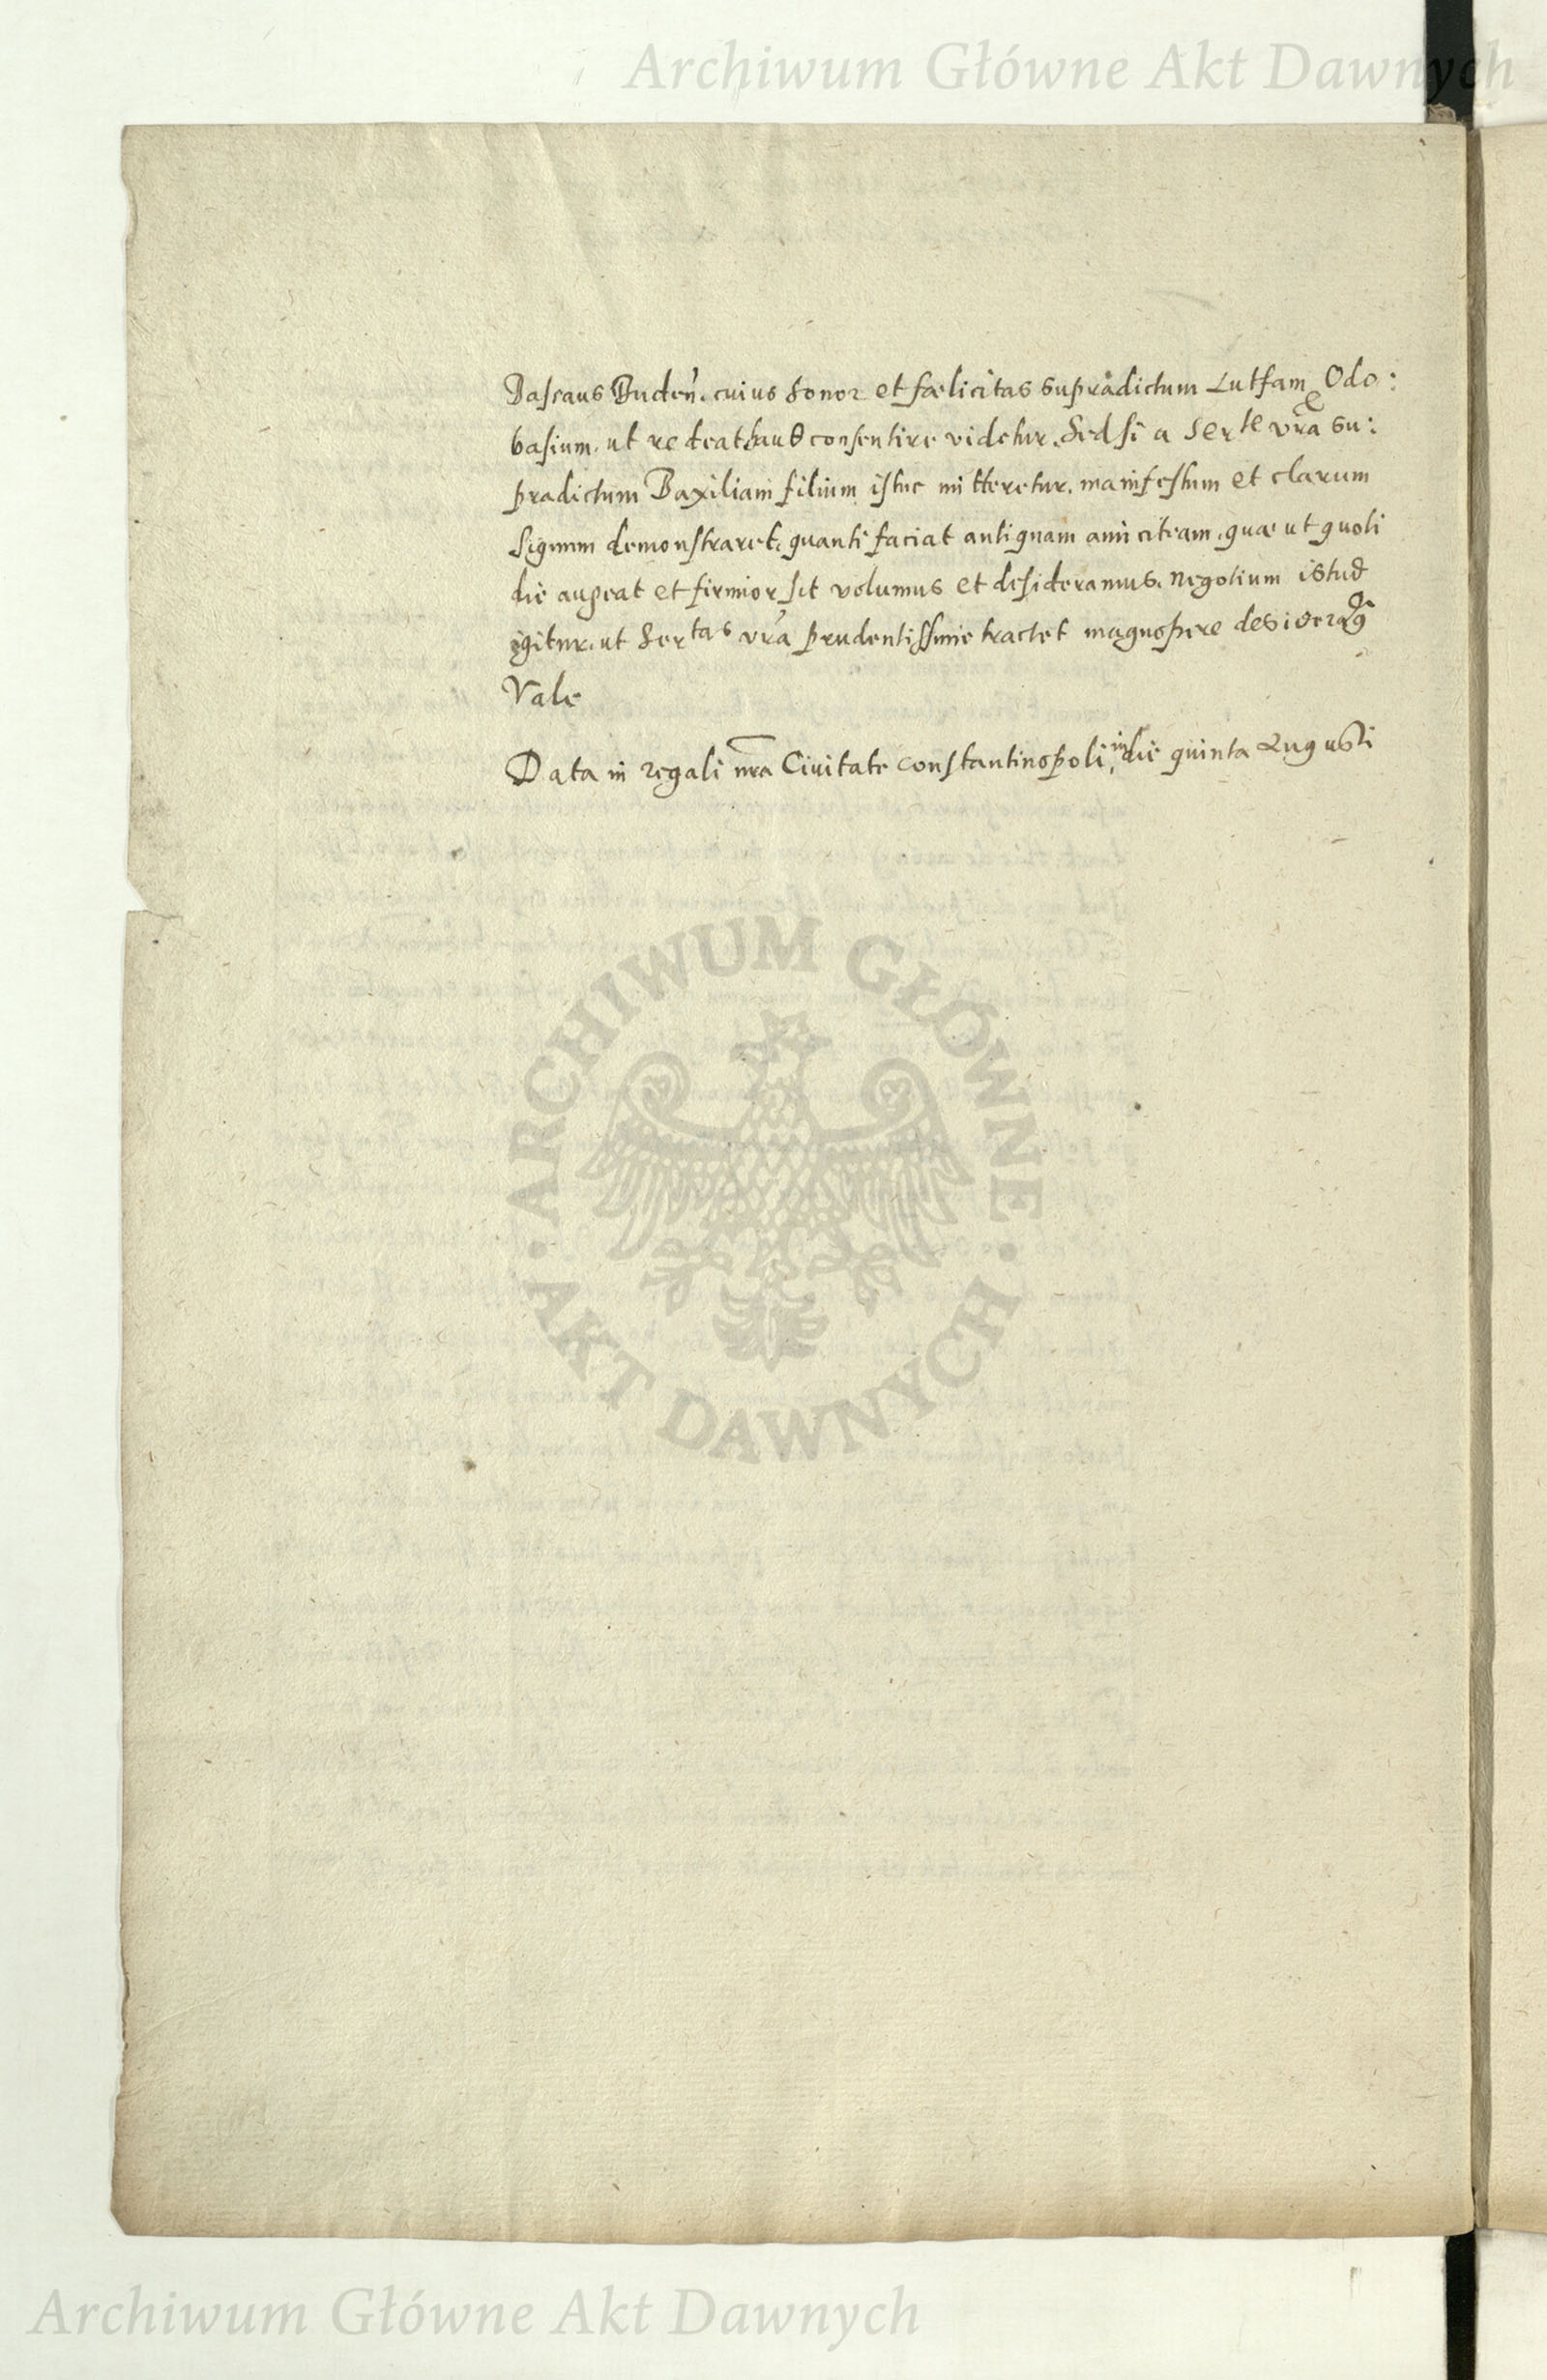 Archiwum Główne Akt Dawnych
Bascaus Buden. cuius honor et fælicitas supradictum Lutfam Odo:
basium. ut redeat haud consentire videtur. Sed si a Serte vra su:
pradictum Baxiliam filium istuc mitteretur. manifestum et clarum
signum demonstraret. quanti faciat antiquam amiciteam. quæ ut quoti
die augeat et firmior sit volumus et desideramus. Negotium istud
igitur. ut Sertas vra prudentissime tractet magnopere
Vale
Data in regali nra Civitate Constantinopoli, in die quinta Augusti
ARCHIWUM GŁÓWNE
AKT DAWNYCH
Archiwum Główne Akt Dawnych